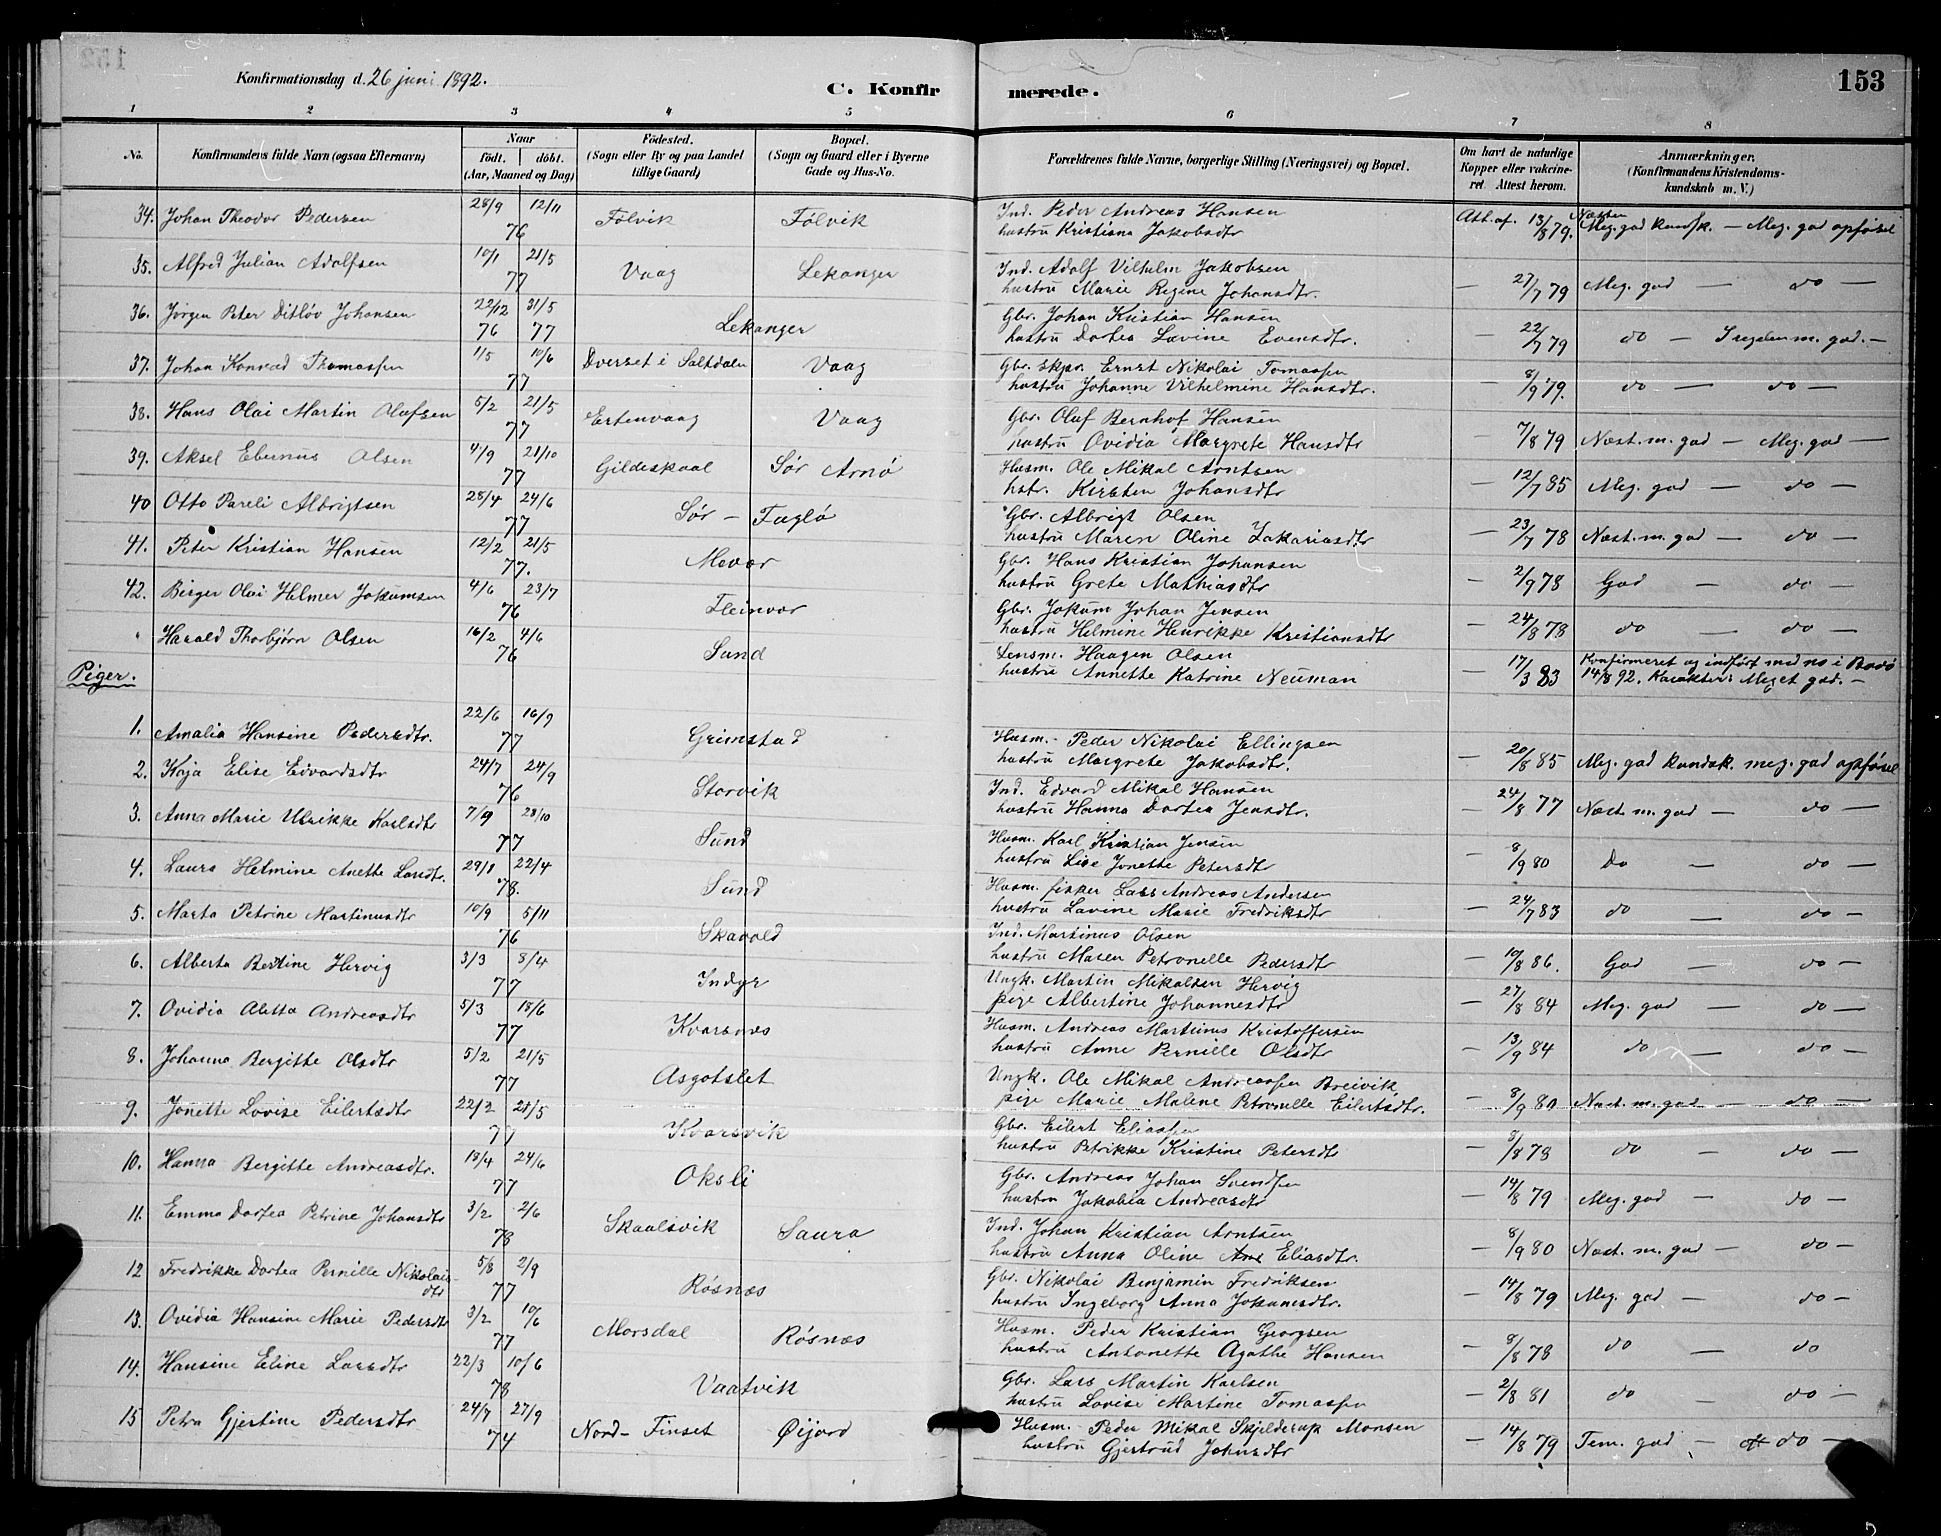 153
Konfirmationsdag d. 26 juni 1892.
C. Konfirmerede.
1 2 3 4 5 6 7 8
No. Konfirmandens fulde Navn (ogsaa Efternavn) Naar født. døbt. (Aar, Maaned og Dag) Fødested. (Sogn eller By og paa Landet tillige Gaard) Bopæl. (Sogn og Gaard eller i Byerne Gade og Hus-No. Forældrenes fulde Navne, borgerlige Stilling (Næringsvei) og Bopæl. Om havt de naturlige Kopper eller vakcineret. Attest herom. Anmærkninger. (Konfirmandens Kristendomskundskab m. V.)
34. Johan Theodor Pedersen 28/9 12/11 76 Følvik Følvik Ind. Peder Andreas Hansen
hustru Kristiana Jakobsdtr Att. af. 13/8 79. Næsten Meg. god kundsk. — Meg. god opførsel
35. Alfred Julian Adolfsen 10/1 21/5 77 Vaag Lekanger Ind. Adolf Vilhelm Jakobsen
hustru Marie Regine Johansdtr. — 27/7 79 Meg. god — do —
36. Jørgen Peter Ditløv Johansen 22/12 76 31/5 77 Lekanger Gbr. Johan Kristian Hansen
hustru Dortea Lavine Evensdtr. — 22/7 79 do — m. god. —
37. Johan Konrad Thomassen 1/5 10/6 77 Dverset i Saltdalen Vaag Gbr. skpr. Ernst Nikolai Tomassen
hustru Johanne Vilhelmine Hansdtr. — 8/9 79. do — do —
38. Hans Olai Martin Olufsen 5/2 21/5 77 Ertenvaag Vaag Gbr. Oluf Bernhof Hansen
hustru Ovidia Margrete Hansdtr — 7/8 79 Næst. m. god — Meg. god —
39. Aksel Ebernus Olsen 4/9 21/10 77 Gildeskaal Sør Arnø Husm. Ole Mikal Arntsen
hstr. Kirsten Johansdtr — 12/7 85 Meg. god — do —
40 Otto Pareli Albrigtsen 28/4 24/6 77 Sør — Fuglø Gbr. Albrigt Olsen
hustru Maren Oline Zakariasdtr — 23/7 78 Næst. m. god — do —
41. Peter Kristian Hansen 12/2 21/5 77. Mevær Gbr. Hans Kristian Johansen
hustru Grete Mathiasdtr — 2/9 78 God — do —
42. Birger Olai Helmer Jokumsen 4/6 23/7 76 Fleinvær Gbr. Jokum Johan Jensen
hustru Helmine Henrikke Kristiansdtr — 24/8 78 do — do —
" Harald Thorbjørn Olsen 16/2 4/6 76 Sund Lensm. Haagen Olsen
hustru Annette Katrine Neuman — 17/3 83 Konfirmeret og indført med no i Bodø
14/8 92. Karakter: Meget god. —
Piger.
1. Amalia Hansine Pedersdtr. 22/6 16/9 77 Grimstad Husm. Peder Nikolai Ellingsen
hustru Margrete Jakobsdtr. — 20/8 85 Meg. god kundsk. meg. god opførsel
2. Kaja Elise Edvardsdtr 24/7 24/9 76 Storvik Ind. Edvard Mikal Hansen
hustru Hanna Dortea Jensdtr. — 24/8 77 Næst. m. god — do —
3. Anna Marie Ulrikke Karlsdtr 7/9 28/10 77 Sund Husm. Karl Kristian Jensen
hustru Lise Jonette Petersdtr — 8/9 80 Do — do —
4. Laura Helmine Anette Larsdtr. 29/1 22/4 78. Sund Husm. fisker Lars Andreas Andersen
hustru Lavine Marie Fredriksdtr — 24/7 83 do — do —
5. Marta Petrine Martinusdtr 10/9 5/11 76 Skavold Ind. Martinus Olsen
hustru Maren Petronelle Pedersdtr — 10/8 86. God — do —
6. Alberta Bertine Hervig 3/3 8/4 77 Indyr Ungk. Martin Mikalsen Hervig
pige Albertine Johannesdtr — 27/8 84 Meg. god — do —
7. Ovidia Aletta Andreasdtr 5/3 18/6 77 Kvarsnes Husm. Andreas Martinus Kristoffersen
hustru Anne Pernille Olsdtr — 13/9 84 do — do —
8. Johanna Bergitte Olsdtr 5/2 21/5 77 Asgotslet Ungk. Ole Mikal Andreassen Breivik
pige Marie Malene Petronelle Eilertsdtr. — 8/9 80 Næst. m. god — do —
9. Jonette Lovise Eilertsdtr 22/2 21/5 77 Kvarsvik Gbr. Eilert Eliassen
hustru Petrikke Kristine Petersdtr — 8/8 78 do — do —
10. Hanna Bergitte Andreasdtr. 18/4 24/6 77 Oksli Gbr. Andreas Johan Svendsen
hustru Jakobia Andreasdtr — 14/8 79 Meg. god — do —
11. Emma Dortea Petrine Johansdtr 3/2 2/6 78 Skaalsvik Saura Ind. Johan Kristian Arntsen
hustru Anna Oline Eliasdtr. — 8/9 80 Næst. m. god — do —
12 Fredrikke Dortea Pernille Nikolaisdtr 5/8 2/9 77 Røsnæs Gbr. Nikolai Benjamin Fredriksen
hustru Ingeborg Anna Johansdtr. — 14/8 79 Meg. god — do —
13. Ovidia Hansine Marie Pedersdtr 3/2 10/6 77 Morsdal Røsnæs Husm. Peder Kristian Georgsen
hustru Antonette Agathe Hansen — 8/8 78 do — do
14. Hansine Eline Larsdtr 22/3 10/6 78 Vaatvik Gbr. Lars Martin Karlsen
hustru Lovise Martine Tomassen — 2/8 81 do — do —
15 Petra Gjertine Pedersdtr 24/7 27/9 74 Nord-Finset Øijord Husm. Peder Mikal Skjelderup Monsen
hustru Gjertrud Johnsdtr — 14/8 79 Tem. god — do —